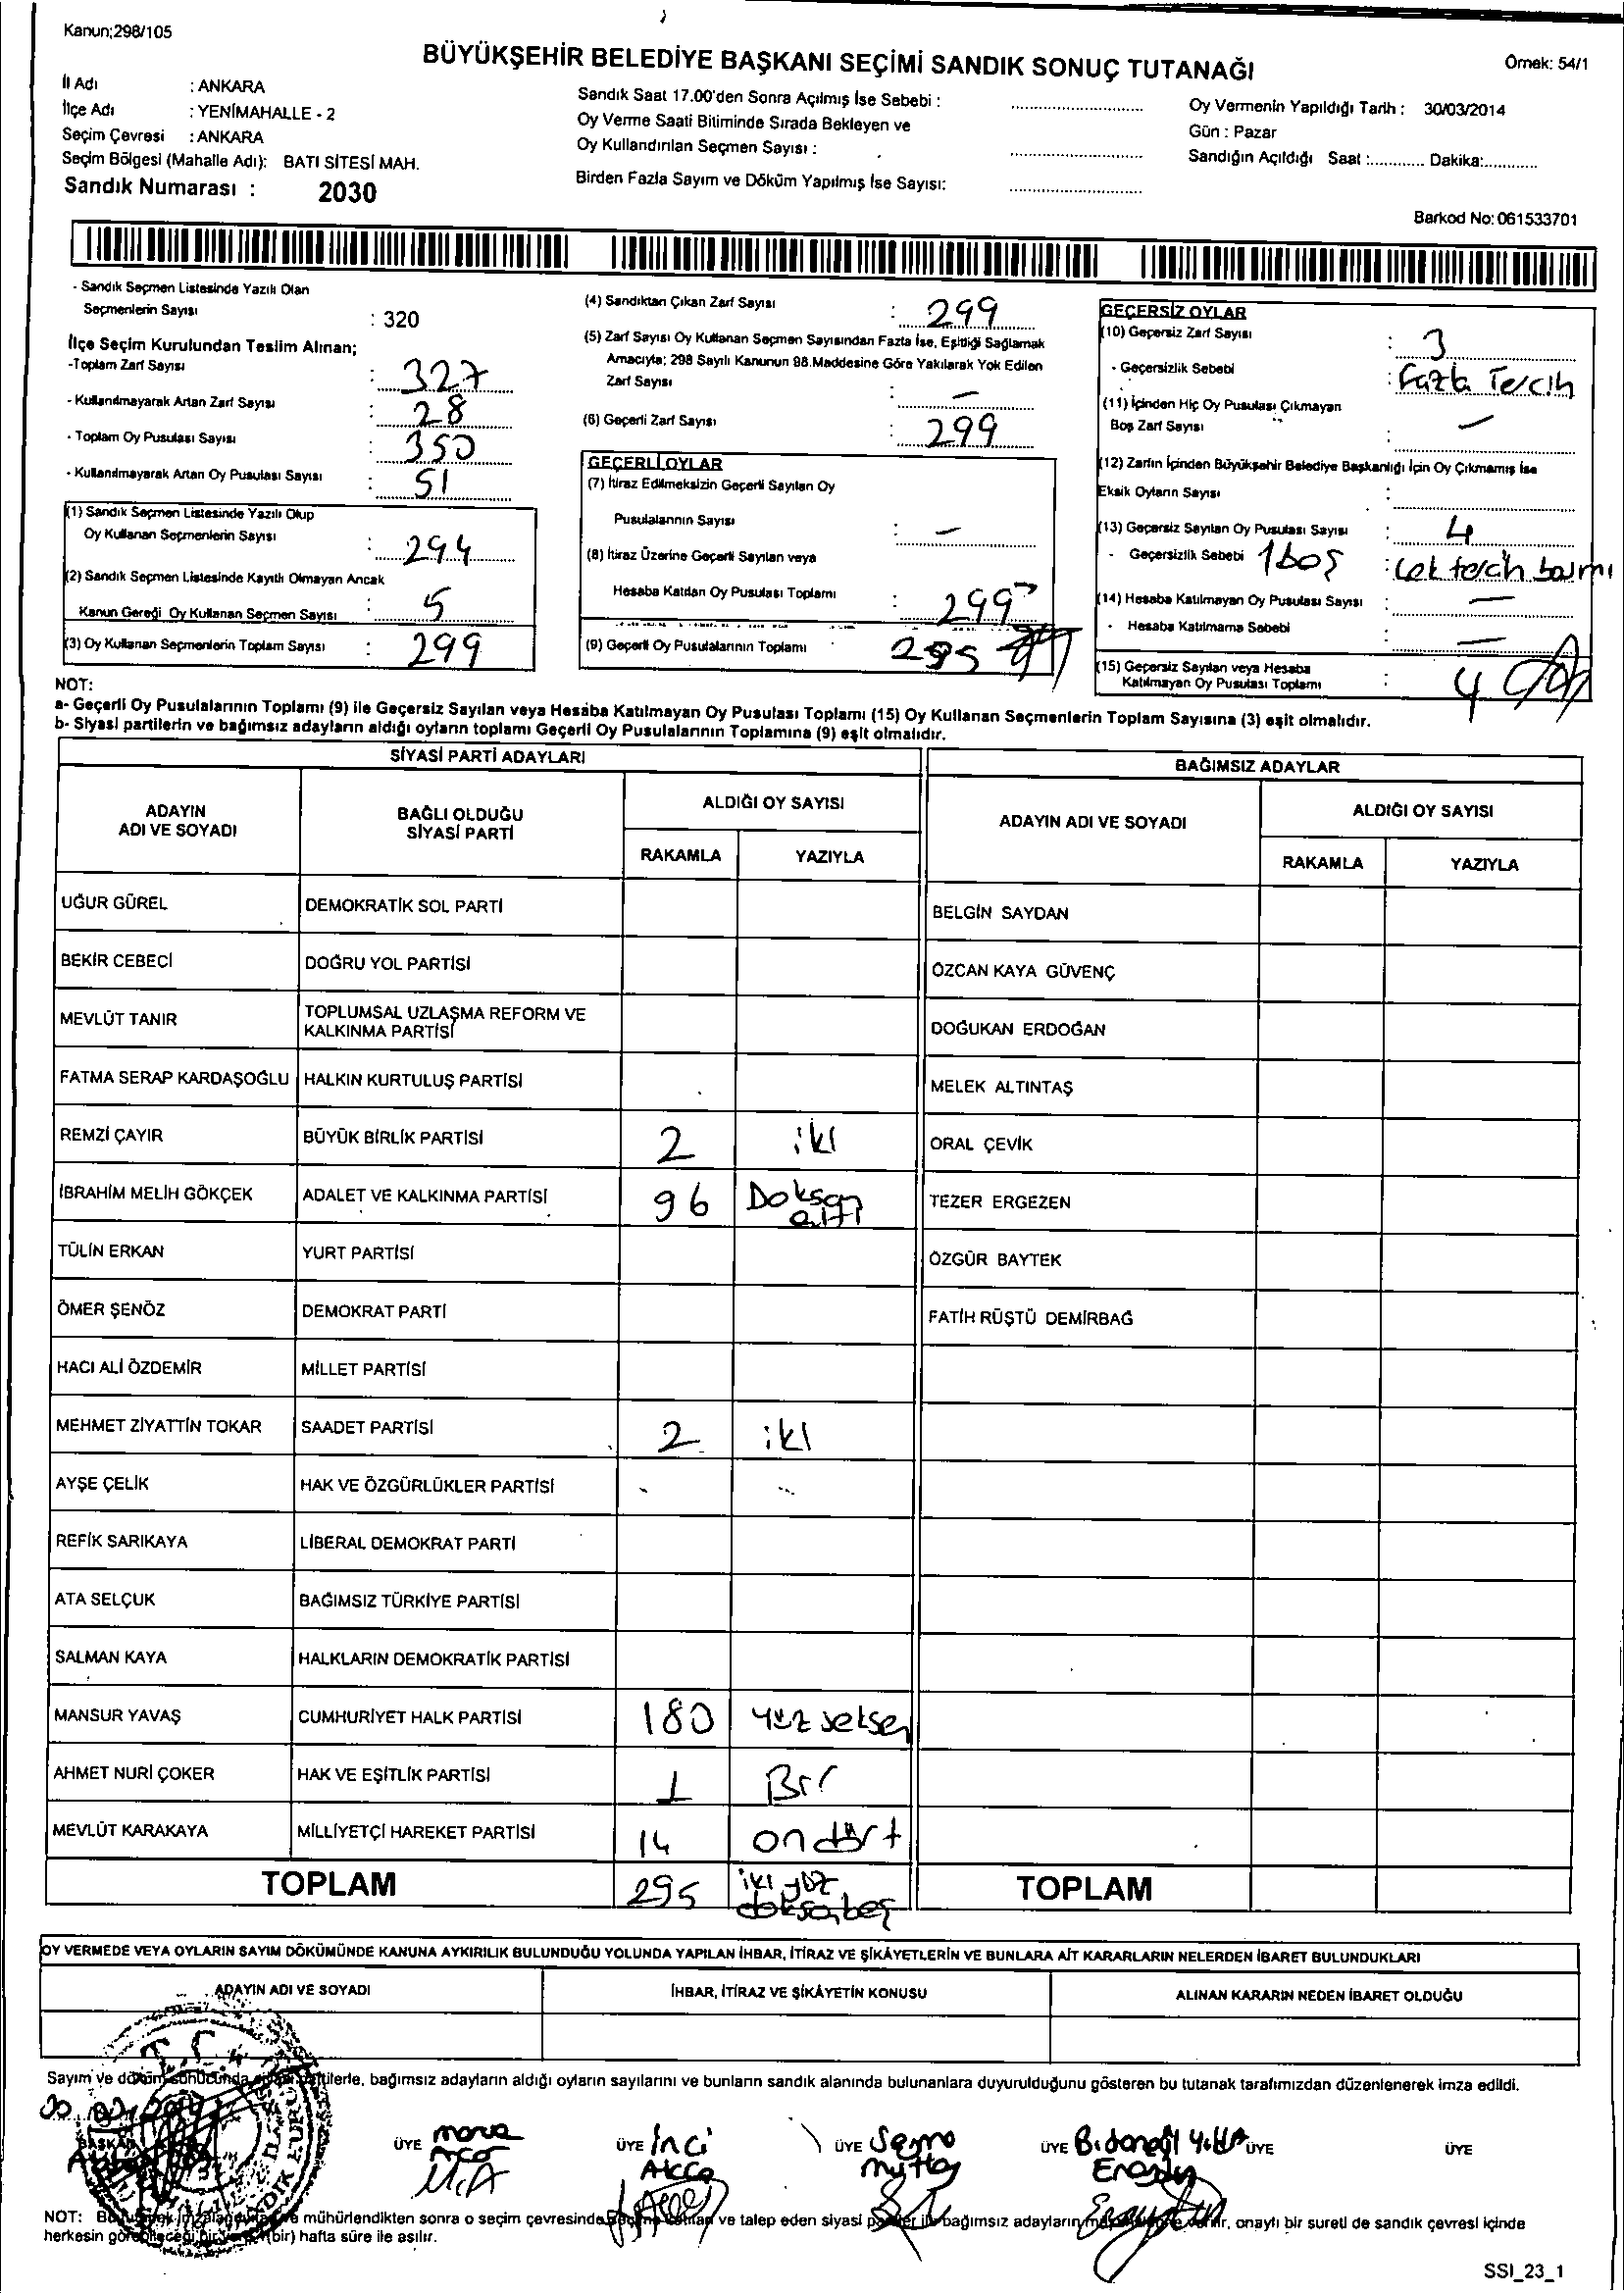 Kanun;298/105
BÜYÜKŞEHİR BELEDİYE BAŞKANI SEÇİMİ SANDIK SONUÇ TUTANAĞI
Örnek: 54/1
İl Adı : ANKARA
İlçe Adı : YENİMAHALLE - 2
Seçim Çevresi : ANKARA
Seçim Bölgesi (Mahalle Adı): BATI SİTESİ MAH.
Sandık Numarası : 2030
Sandık Saat 17.00'den Sonra Açılmış İse Sebebi :
Oy Verme Saati Bitiminde Sırada Bekleyen ve
Oy Kullandırılan Seçmen Sayısı :
Birden Fazla Sayım ve Döküm Yapılmış İse Sayısı:
Oy Vermenin Yapıldığı Tarih : 30/03/2014
Gün : Pazar
Sandığın Açıldığı Saat :............ Dakika:............
Barkod No: 061533701
- Sandık Seçmen Listesinde Yazılı Olan
Seçmenlerin Sayısı : 320
İlçe Seçim Kurulundan Teslim Alınan;
-Toplam Zarf Sayısı : 327
- Kullanılmayarak Artan Zarf Sayısı : 28
- Toplam Oy Pusulası Sayısı : 350
- Kullanılmayarak Artan Oy Pusulası Sayısı : 51
(1) Sandık Seçmen Listesinde Yazılı Olup
Oy Kullanan Seçmenlerin Sayısı : 294
(2) Sandık Seçmen Listesinde Kayıtlı Olmayan Ancak
Kanun Gereği Oy Kullanan Seçmen Sayısı : 5
(3) Oy Kullanan Seçmenlerin Toplam Sayısı : 299
(4) Sandıktan Çıkan Zarf Sayısı : 299
(5) Zarf Sayısı Oy Kullanan Seçmen Sayısından Fazla İse, Eşitliği Sağlamak
Amacıyla; 298 Sayılı Kanunun 98.Maddesine Göre Yakılarak Yok Edilen
Zarf Sayısı : —
(6) Geçerli Zarf Sayısı : 299
GEÇERLİ OYLAR
(7) İtiraz Edilmeksizin Geçerli Sayılan Oy
Pusulalarının Sayısı : —
(8) İtiraz Üzerine Geçerli Sayılan veya
Hesaba Katılan Oy Pusulası Toplamı : 299
(9) Geçerli Oy Pusulalarının Toplamı : 295
GEÇERSİZ OYLAR
(10) Geçersiz Zarf Sayısı : 3
- Geçersizlik Sebebi : Fazla Tercih
(11) İçinden Hiç Oy Pusulası Çıkmayan
Boş Zarf Sayısı : —
(12) Zarfın İçinden Büyükşehir Belediye Başkanlığı İçin Oy Çıkmamış İse
Eksik Oyların Sayısı :
(13) Geçersiz Sayılan Oy Pusulası Sayısı : 4
- Geçersizlik Sebebi 1 boş :
(14) Hesaba Katılmayan Oy Pusulası Sayısı : —
- Hesaba Katılmama Sebebi : —
(15) Geçersiz Sayılan veya Hesaba
Katılmayan Oy Pusulası Toplamı : 4
NOT:
a- Geçerli Oy Pusulalarının Toplamı (9) ile Geçersiz Sayılan veya Hesaba Katılmayan Oy Pusulası Toplamı (15) Oy Kullanan Seçmenlerin Toplam Sayısına (3) eşit olmalıdır.
b- Siyasi partilerin ve bağımsız adayların aldığı oyların toplamı Geçerli Oy Pusulalarının Toplamına (9) eşit olmalıdır.
SİYASİ PARTİ ADAYLARI
ADAYIN ADI VE SOYADI
BAĞLI OLDUĞU SİYASİ PARTİ
ALDIĞI OY SAYISI
RAKAMLA YAZIYLA
BAĞIMSIZ ADAYLAR
ADAYIN ADI VE SOYADI
ALDIĞI OY SAYISI
RAKAMLA YAZIYLA
UĞUR GÜREL DEMOKRATİK SOL PARTİ BELGİN SAYDAN
BEKİR CEBECİ DOĞRU YOL PARTİSİ ÖZCAN KAYA GÜVENÇ
MEVLÜT TANIR TOPLUMSAL UZLAŞMA REFORM VE KALKINMA PARTİSİ DOĞUKAN ERDOĞAN
FATMA SERAP KARDAŞOĞLU HALKIN KURTULUŞ PARTİSİ MELEK ALTINTAŞ
REMZİ ÇAYIR BÜYÜK BİRLİK PARTİSİ 2 iki ORAL ÇEVİK
İBRAHİM MELİH GÖKÇEK ADALET VE KALKINMA PARTİSİ 96 Doksan altı TEZER ERGEZEN
TÜLİN ERKAN YURT PARTİSİ ÖZGÜR BAYTEK
ÖMER ŞENÖZ DEMOKRAT PARTİ FATİH RÜŞTÜ DEMİRBAĞ
HACI ALİ ÖZDEMİR MİLLET PARTİSİ
MEHMET ZİYATTİN TOKAR SAADET PARTİSİ 2 iki
AYŞE ÇELİK HAK VE ÖZGÜRLÜKLER PARTİSİ
REFİK SARIKAYA LİBERAL DEMOKRAT PARTİ
ATA SELÇUK BAĞIMSIZ TÜRKİYE PARTİSİ
SALMAN KAYA HALKLARIN DEMOKRATİK PARTİSİ
MANSUR YAVAŞ CUMHURİYET HALK PARTİSİ 180 yüz seksen
AHMET NURİ ÇOKER HAK VE EŞİTLİK PARTİSİ 1 Bir
MEVLÜT KARAKAYA MİLLİYETÇİ HAREKET PARTİSİ 14 on dört
TOPLAM 295 iki yüz doksanbeş TOPLAM
OY VERMEDE VEYA OYLARIN SAYIM DÖKÜMÜNDE KANUNA AYKIRILIK BULUNDUĞU YOLUNDA YAPILAN İHBAR, İTİRAZ VE ŞİKÂYETLERİN VE BUNLARA AİT KARARLARIN NELERDEN İBARET BULUNDUKLARI
ADAYIN ADI VE SOYADI İHBAR, İTİRAZ VE ŞİKÂYETİN KONUSU ALINAN KARARIN NEDEN İBARET OLDUĞU
T.C.
Sayım ve döküm sonucunda siyasi partilerle, bağımsız adayların aldığı oyların sayılarını ve bunların sandık alanında bulunanlara duyurulduğunu gösteren bu tutanak tarafımızdan düzenlenerek imza edildi.
BAŞKAN ÜYE ÜYE İnci ÜYE ÜYE ÜYE ÜYE
Akça
NOT: mühürlendikten sonra o seçim çevresinde ve talep eden siyasi bağımsız adayların verilir, onaylı bir sureti de sandık çevresi içinde
herkesin görebileceği bir (bir) hafta süre ile asılır.
SSI_23_1